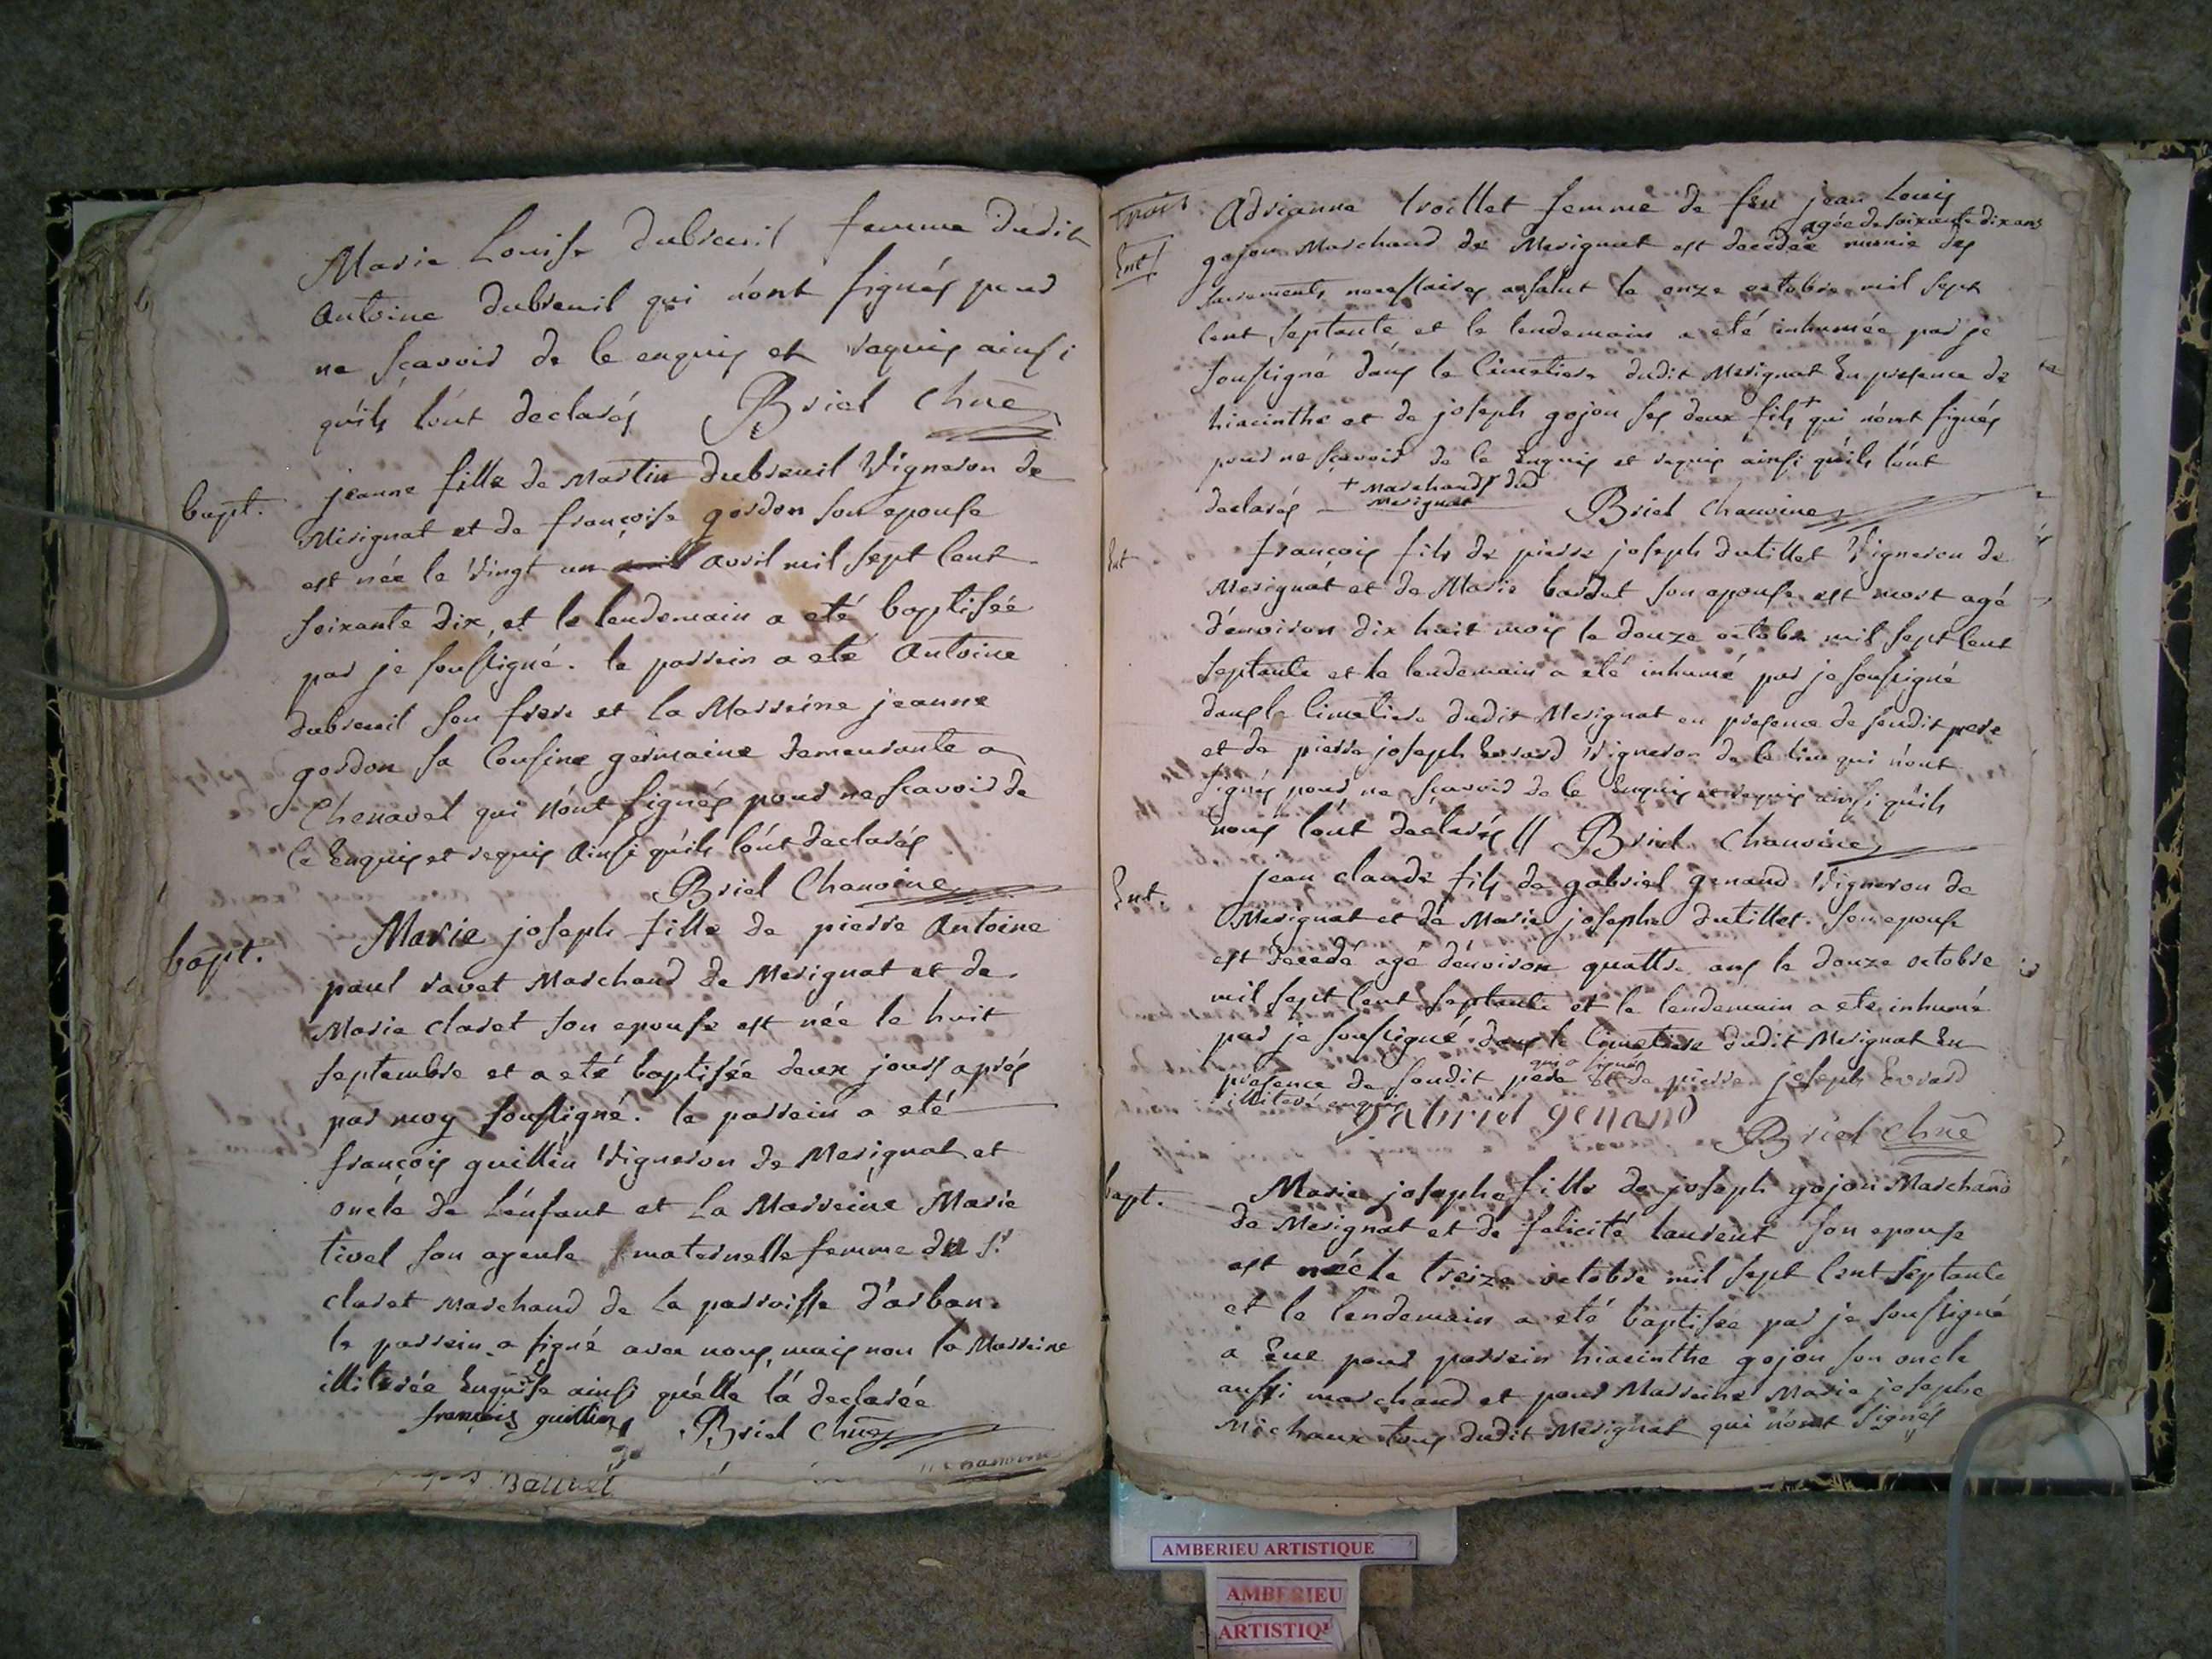 Marie Louise dubreuil femme dudit
Antoine dubreuil qui n'ont signés pour
ne sçavoir de ce enquis et requis ainsi
qu'ils l'ont declarés Briel Chne
bapt. jeanne fille de Martin dubreuil Vigneron de
Mirignat et de françoise gordon son epouse
est née le vingt un avril mil sept cent
soixante dix, et le lendemain a eté baptisée
par je soussigné. le parrein a eté Antoine
dubreuil son frere et la Marreine jeanne
gordon sa Cousine germaine demeurante a
Chenavel qui n'ont signés pour ne scavoir de
ce Enquis et requis Ainsi qu'ils l'ont declarés
Briel Chanoine
bapt. Marie joseph fille de pierre Antoine
paul ravet Marchand de Merignat et de
Marie claret son epouse est née le huit
septembre et a eté baptisée deux jours aprés
par moy soussigné. le parrein a eté
françois guillin Vigneron de Merignat et
oncle de L'enfant et La Marreine Marie
tivel son ayeule maternelle femme du Sr
claret Marchand de La parroisse d'arban.
le parrein a signé avec nous, mais non la Marreine
illiterée Enquise ainsi qu'elle l'a declarée
françois guillin Briel Chne
Adrianne troillet femme de feu jean Louis
agée de soixante dix ans
Ent. gojon Marchand de Merignat est decedée munie des
sacrements necessaires a salut le onze octobre mil sept
cent septante et le lendemain a eté inhumée par je
soussigné dans le Cimetiere dudit Merignat En presence de
hiacinthe et de joseph gojon ses deux fils + qui n'ont signés
pour ne sçavoir de ce Enquis et requis ainsi qu'ils l'ont
+ Marchands dud
declarés Merignat Briel Chanoine
Ent françois fils de pierre joseph dutillet Vigneron de
Merignat et de Marie bardet son epouse est mort agé
d'environ dix huit mois le douze octobre mil sept cent
septante et le lendemain a eté inhumé par je soussigné
dans le Cimetiere dudit Merignat en presence de sondit pere
et de pierre joseph Evrard Vigneron de ce lieu qui n'ont
signés pour ne sçavoir de ce Enquis et requis ainsi qu'ils
nous l'ont declarés // Briel Chanoine
Ent. jean claude fils de gabriel genand Vigneron de
Merignat et de Marie josephe dutillet son epouse
est decedé agé d'environ quattre ans le douze octobre
mil sept cent septante et le lendemain a eté inhumé
par je soussigné dans le Cimetiere dudit Merignat En
qui a signé
presence de sondit pere et de pierre joseph Evrard
illiteré enquis
gabriel genand Briel Chne
bapt. Marie josephe fille de joseph gojon Marchand
de Merignat et de felicité laurent son epouse
est née le treize octobre mil sept Cent septante
et le lendemain a eté baptisée par je soussigné
a Eue pour parrein hiacinthe gojon son oncle
aussi marchand et pour Marreine Marie josephe
Michaux tous dudit Merignat qui n'ont signés
AMBERIEU ARTISTIQUE
AMBERIEU
ARTISTIQ